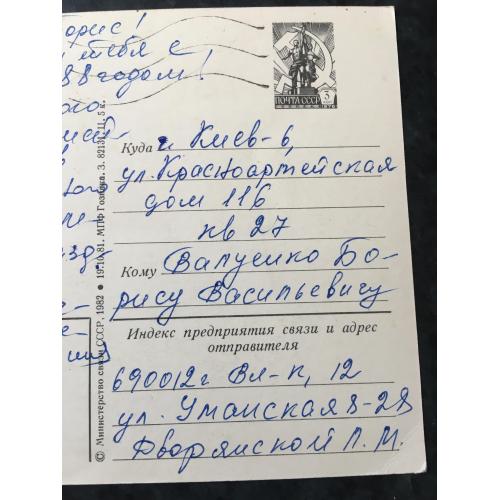 орис!
тебя с
88 годом!
ПОЧТА СССР
3
Куда г. Киев-6,
ул. Красноартейская
дом 116
кв 27
Кому Валуенко Бо-
рису Васильевичу
Индекс предприятия связи и адрес
отправителя
690012 г Вл-к, 12
ул. Уманская 8-28
Дворянской Л. М.
© Министерство связи СССР, 1982 • 19.10.81. МПФ Гознака. З. 82131. Ц. 5 к.